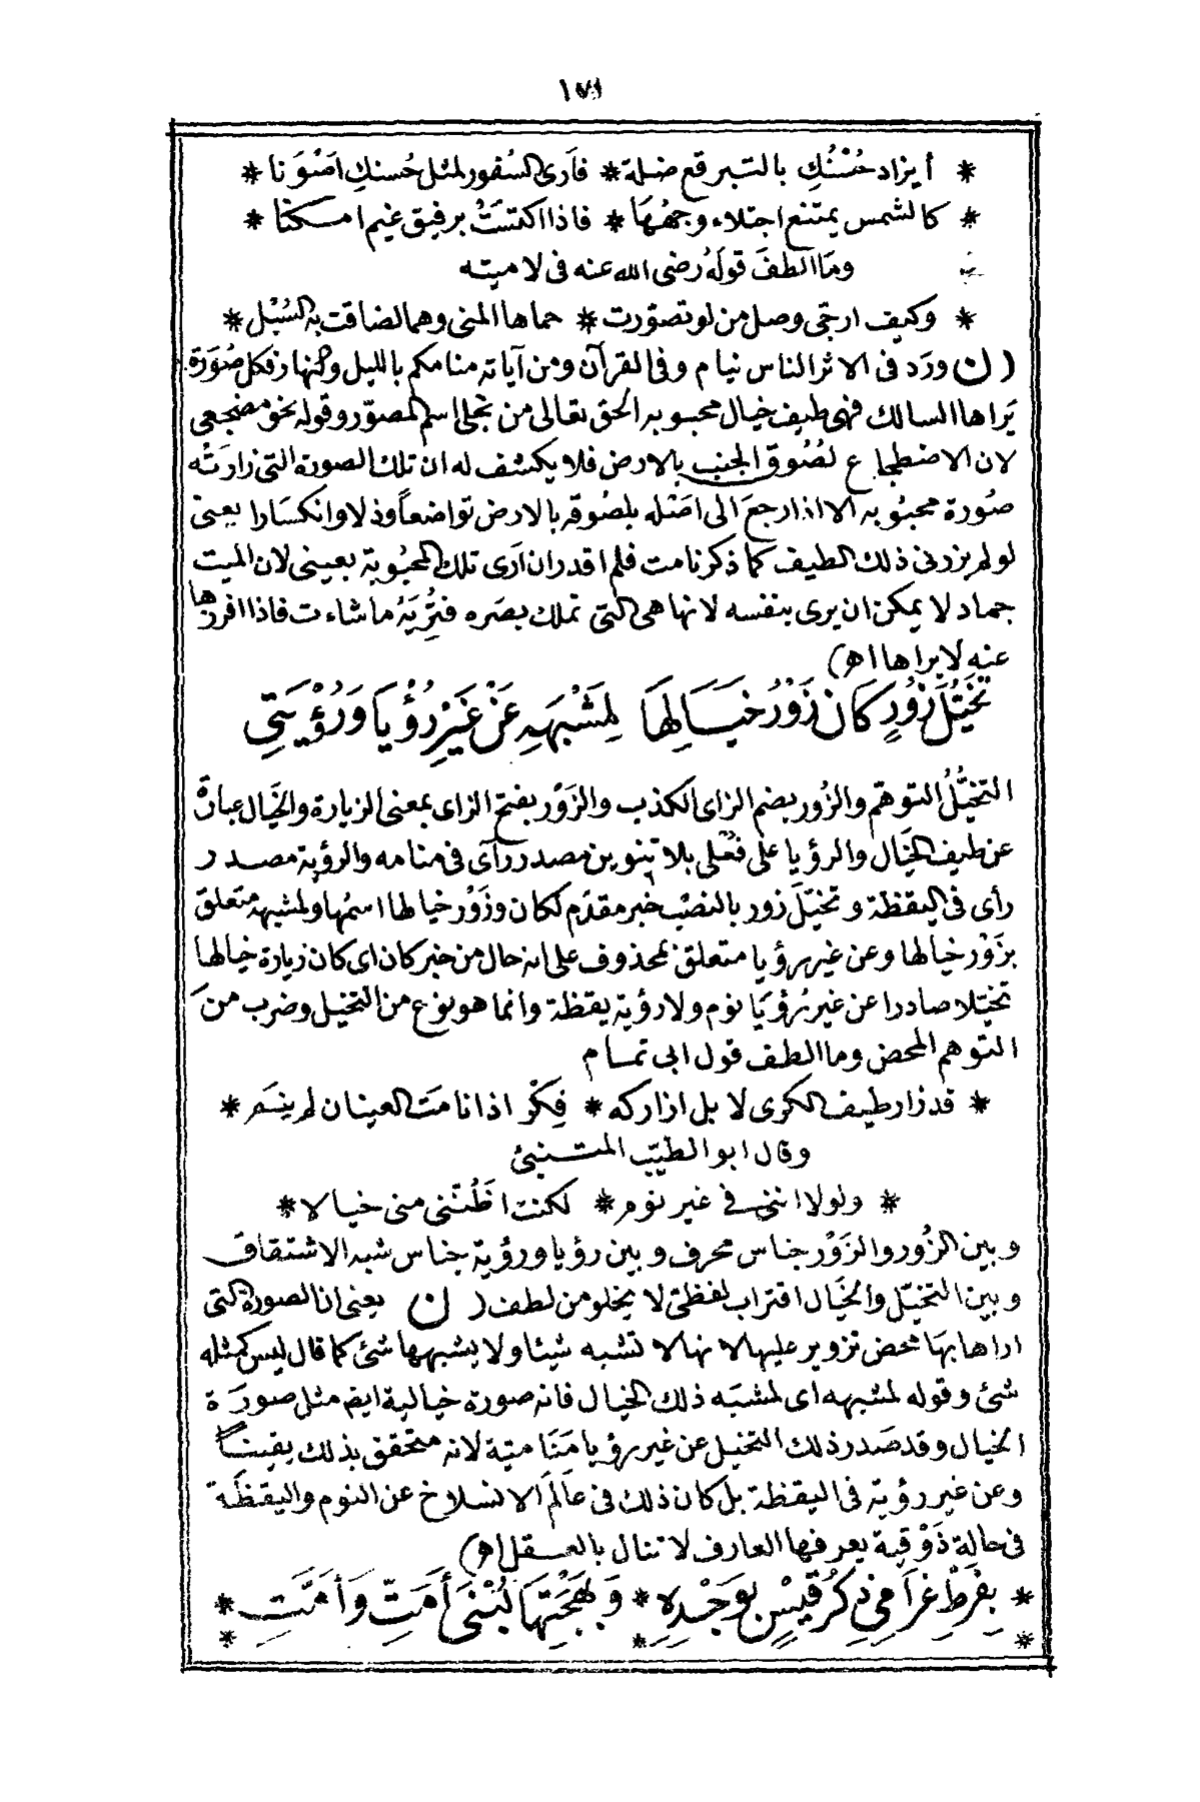 ١٧١
* أيزاد حُسْنُكِ بالتبرقع ضلة * فأرى السُفور لمثل حُسنكِ اَصْوَنا *
* كالشمس يمتنع اجتلاء وجهُهَا * فاذا اكتسَتْ برقيق غيم امكنا *
وما الطفَ قولهُ رضى الله عنه فى لاميته
* وكيف ارجّى وصل من لو تصوّرت * حماها المنى وهما لضاقت به السُبْل *
(ن ورَد فى الاثر الناس نيام وفى القرآن ومن آياته منامكم بالليل والنهار فكل صُورَة
يَراها السالك فهى طيف خيال محبوبه الحق تعالى من تجلى اسم المصوّر وقوله نحو مضجعى
لان الاضطجاع لصُوق الجنب بالارض فلا يكشف له ان تلك الصورة التى زارَتْه
صُورة محبُوبه الا اذا رجعَ الى اصْله بلصُوقه بالارض تواضعاً وذلا وانكسَارا يعنى
لو لم يزرنى ذلك الطيف كما ذكرنا مت فلم اقدر ان ارَى تلك المحبُوبة بعينى لان الميت
جماد لا يمكن ان يرى بنفسه لانها هى التى تملك بصَره فتُريَهُ ما شاءت فاذا افردها
عنه لا يراها اه)
تَخَيُّلَ زُورٍ كَانَ زَوْرُ خَيَالِهَا لِمَشْبَهِهِ عَنْ غَيْرِ رُؤْيَا وَرُؤْيَتِي
التخيُّلُ التوهّم والزُور بضم الزاى الكذب والزَوْر بفتح الزاى بمعنى الزيارة والخَيال عبارة
عن طيف الخَيال والرؤيا على فُعْلى بلا تنوين مصدر رَآى فى منامه والرؤية مصدر
رأى فى اليقظة وتخيّلَ زور بالنصْب خبر مقدَم لكان وزَوْر خيالها اسمُها ولمشبهه متعلق
بزَوْر خيالها وعن غير رؤيا متعلق بمحذوف على انه حال من خبر كان اى كان زيارة خيالها
تخيّلا صادرا عن غير رُؤيَا نوم ولا رؤية يقظة وانما هو نوع من التخيل وضرب منَ
التوهم المحض وما الطف قول ابى تمام
* قد زار طيف الكرى لا بل ازاركه * فِكْر اذا نامَت العينان لم ينَم *
وقال ابو الطيّب المتنبئ
* ولولا اننى فى غير نوم * لكنت اظُنّنى منى خيالا *
وبين الزُور والزَوْر جناس محرف وبين رؤيا ورؤية جناس شبه الاشتقاق
وبين التخيّل والخَيال اقتراب لفظىّ لا يخلو من لطف (ن يعنى ان الصورة التى
اراها بهَا محض تزوير عليها لانها لا تشبه شيئا ولا يشبهها شئ كما قال ليس كمثله
شئ وقوله لمشبهه اى لمشبَه ذلك الخيال فانه صورة خيالية ايضا مثل صورَة
الخيال وقد صَدر ذلك التخيل عن غير رؤيا مَنَامية لانه متحقق بذلك يقيناً
وعن غير رؤية فى اليقظة بل كان ذلك فى عالَم الانسلاخ عن النوم واليقظَة
فى حالة ذَوْقية يعرفها العارف لا تنال بالعقل اه)
* بِفَرْطِ غرَامِى ذِكْرُ قيْسٍ بوَجْدِهِ * وَبَهْجَتِهَا لُبْنَى أَمَتِّ وَأَمَّتِ *